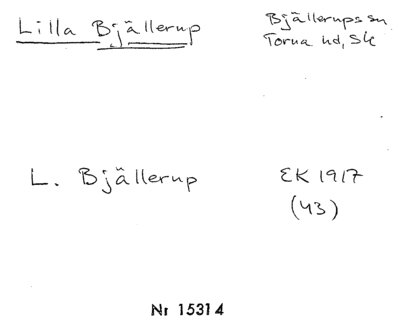 Lilla Bjällerup
Bjällerups sn
Torna hd, Sk
L. Bjällerup
EK 1917
(43)
Nr 15314